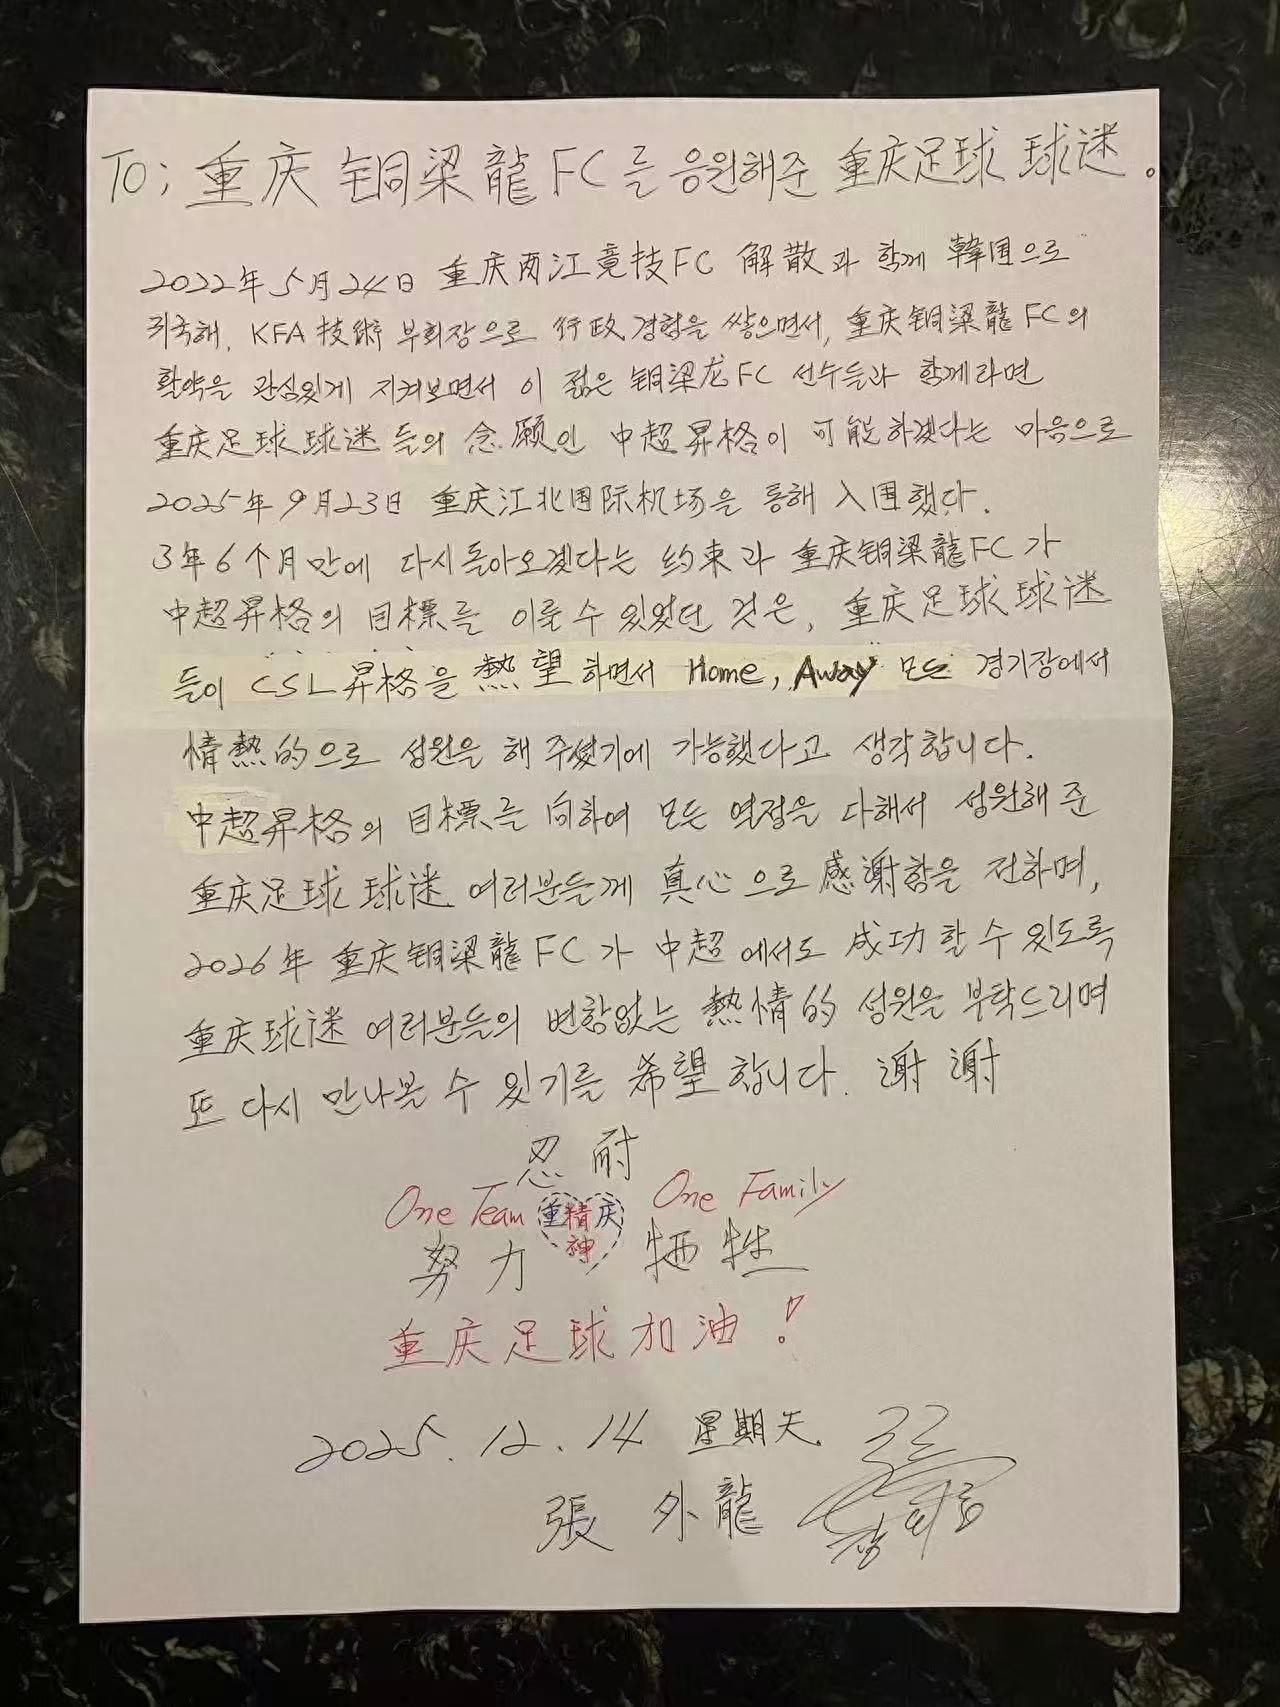 To; 重庆 铜梁龍FC를 응원해준 重庆足球 球谜。
2022年 5月24日 重庆两江竟技FC 解散과 함께 韓国으로
귀국해, KFA 技術 부회장으로 行政 경험을 쌓으면서, 重庆铜梁龍FC의
활약을 관심있게 지켜보면서 이 젊은 铜梁龙FC 선수들과 함께라면
重庆足球球迷들의 念願인 中超昇格이 可能하겠다는 마음으로
2025年 9月23日 重庆江北国际机场을 통해 入国했다.
3年6个月만에 다시돌아오겠다는 約束과 重庆铜梁龍FC가
中超昇格의 目標를 이룰수 있었던 것은, 重庆足球球迷
들이 CSL昇格을 熱望하면서 Home, Away 모든 경기장에서
情熱的으로 성원을 해 주셨기에 가능했다고 생각합니다.
中超昇格의 目標를 向하여 모든 열정을 다해서 성원해 준
重庆足球 球迷 여러분들께 真心으로 感謝함을 전하며,
2026年 重庆铜梁龍FC가 中超에서도 成功할 수 있도록
重庆球迷 여러분들의 변함없는 熱情的 성원을 부탁드리며
또 다시 만나볼 수 있기를 希望합니다. 谢谢
忍耐
One Team 重精庆 One Family
神
努力 牺牲
重庆足球加油!
2025.12.14 星期天
張 外龍